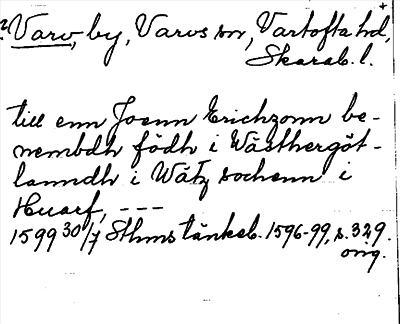 ? Varv, by, Varvs sn, Vartofta hd,
Skarab. l.
till enn Joenn Erichzonn be-
nembdh födh i Wästhergöt-
lanndh i Wätz sochenn i
Huarf, ---
1599 30/7 Sthms tänkeb. 1596-99, s. 329.
orig.